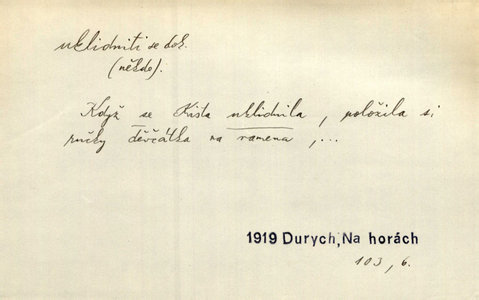 uklidniti se dok.
(někdo).
Když se Kista uklidnila, položila si
ručky děvčátka na ramena,...
1919 Durych, Na horách
103, 6.